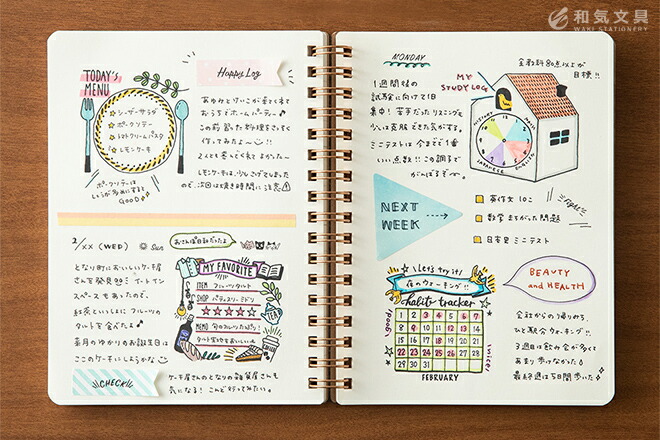 和気文具
WAKI STATIONERY
TODAY's
MENU
シーザーサラダ
ポークソテー
トマトクリームパスタ
レモンケーキ
ポークソテーは
しょうが多めにすると
GOOD
Happy Log
あゆみとりいこが遊びに来て
おうちでホームパーティー♪
この前習った料理をさっそく
作ってみたよ〜
2人とも喜んでくれてよかった〜
レモンケーキは、少しこげてしまった
ので、次回は焼き時間に注意
2/XX (WED) Sun
おさんぽ日和だったよ
となり町においしいケーキ屋
さんを発見!! イートイン
スペースもあったので、
紅茶といっしょに フルーツの
タルトを食べたよ♪
来月のゆかりのお誕生日は
ここのケーキにしようかな
MY FAVORITE
ITEM フルーツタルト
SHOP パティスリー ミドリ
★★★★★
MEMO 旬のフルーツたっぷり!
タルト生地もおいしい
TEA
CHECK!!
ケーキ屋さんのとなりの雑貨屋さんも
気になる! こんど行ってみたい。
MONDAY
1週間後の
試験に向けて1日
集中! 苦手だったリスニングも
少しは克服できた気がする。
ミニテストは今までで1番
いい点数!! この調子で
がんばるぞ〜
全教科80点以上が
目標!!
MY
STUDY LOG
HISTORY
MATH
ENGLISH
JAPANESE
NEXT
WEEK
英作文 10こ
数学 まちがった問題
日本史 ミニテスト
Fight!!
Let's try it!
夜のウォーキング!!
habit tracker
good!
nice!
1 2 3 4 5 6 7
8 9 10 11 12 13 14
15 16 17 18 19 20 21
22 23 24 25 26 27 28
29 30 31
FEBRUARY
BEAUTY
and HEALTH
会社からの帰りみち、
ひと駅分ウォーキング!!
3週目は飲み会が多くて
あまり歩けなかった
最終週は5日間歩いた